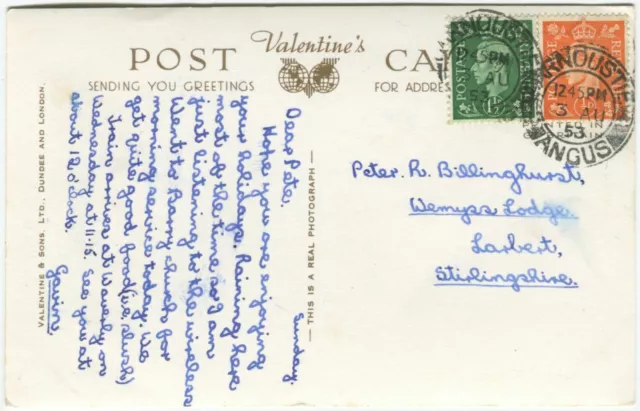 POST CARD
Valentine's
SENDING YOU GREETINGS
FOR ADDRESS
VALENTINE & SONS, LTD., DUNDEE AND LONDON.
THIS IS A REAL PHOTOGRAPH
Sunday.
Dear Pete,
Hope you are enjoying
your holidays. Raining here
most of the time so I am
just listening to the wireless
Went to Barry church for
morning service today. We
get quite good food (i.e. slush)
Train arrives at Waverly on
Wednesday at 11-15. See you at
about 12 o'clock.
Gavin
Peter R. Billinghurst,
Wemyss Lodge.
Larbert,
Stirlingshire.
POSTAGE
REVENUE
CARNOUSTIE
12 45 PM
3 AU
53
ANGUS
CARNOUSTIE
12 45 PM
3 AU
53